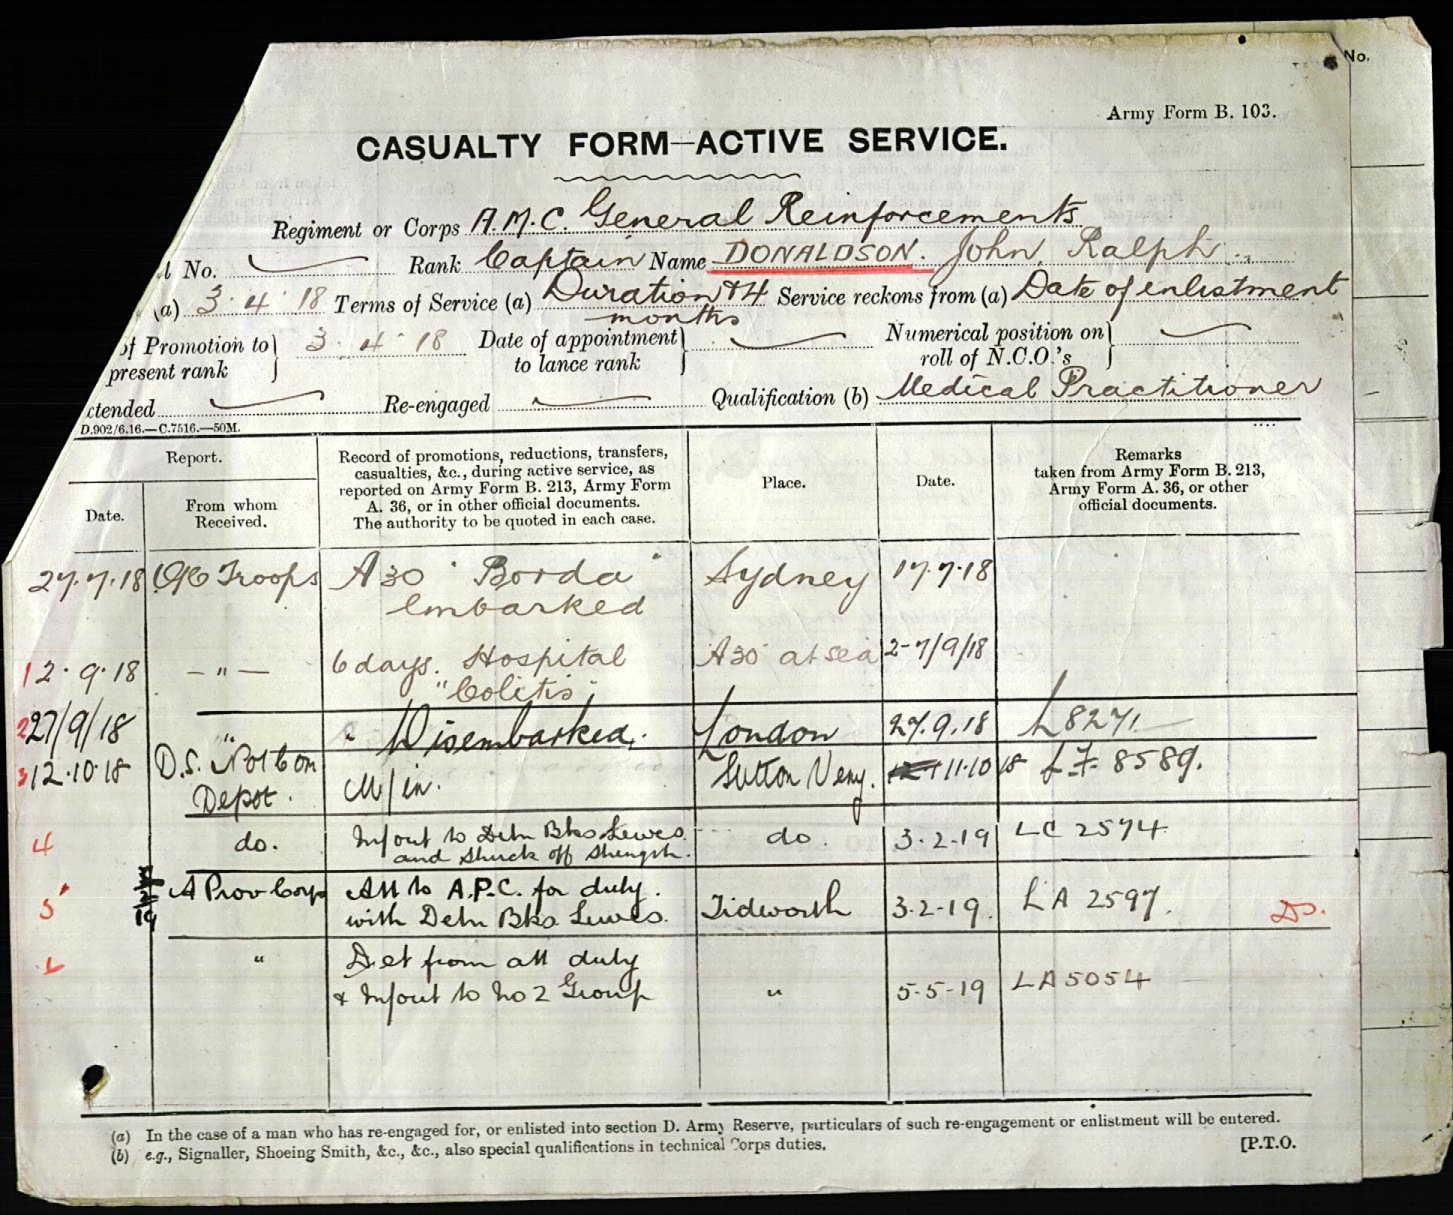 No.
Army Form B. 103.
CASUALTY FORM—ACTIVE SERVICE.
Regiment or Corps A.M.C. General Reinforcements
l No. Rank Captain Name DONALDSON. John Ralph
(a) 3.4.18 Terms of Service (a) Duration & 4 months Service reckons from (a) Date of enlistment
of Promotion to present rank 3.4.18 Date of appointment to lance rank Numerical position on roll of N.C.O.'s
ctended Re-engaged Qualification (b) Medical Practitioner
D.902/6.16.—C.7516.—50M.
Report.
Date.
From whom Received.
Record of promotions, reductions, transfers,
casualties, &c., during active service, as
reported on Army Form B. 213, Army Form
A. 36, or in other official documents.
The authority to be quoted in each case.
Place.
Date.
Remarks
taken from Army Form B. 213,
Army Form A. 36, or other
official documents.
27.7.18 O/C Troops A30 "Borda" Sydney 17.7.18
Embarked
12.9.18 — " — 6 days. Hospital A30 at sea 2-7/9/18
"Colitis"
2 27/9/18 " Disembarked. London 27.9.18 L8271
3 12.10.18 D.S. Not Com M/in. Sutton Veny. 11.10.18 L.F. 8589.
Depot.
4 do. M/out to Detn Bks Lewes do. 3.2.19 LC 2574
and struck off strength.
5 A Prov Corps Att to A.P.C. for duty.
with Detn Bks Lewes. Tidworth 3.2.19. LA 2597.
" Det from att duty
& M/out to No 2 Group " 5.5.19 LA 5054
(a) In the case of a man who has re-engaged for, or enlisted into section D. Army Reserve, particulars of such re-engagement or enlistment will be entered.
(b) e.g., Signaller, Shoeing Smith, &c., &c., also special qualifications in technical Corps duties.
[P.T.O.